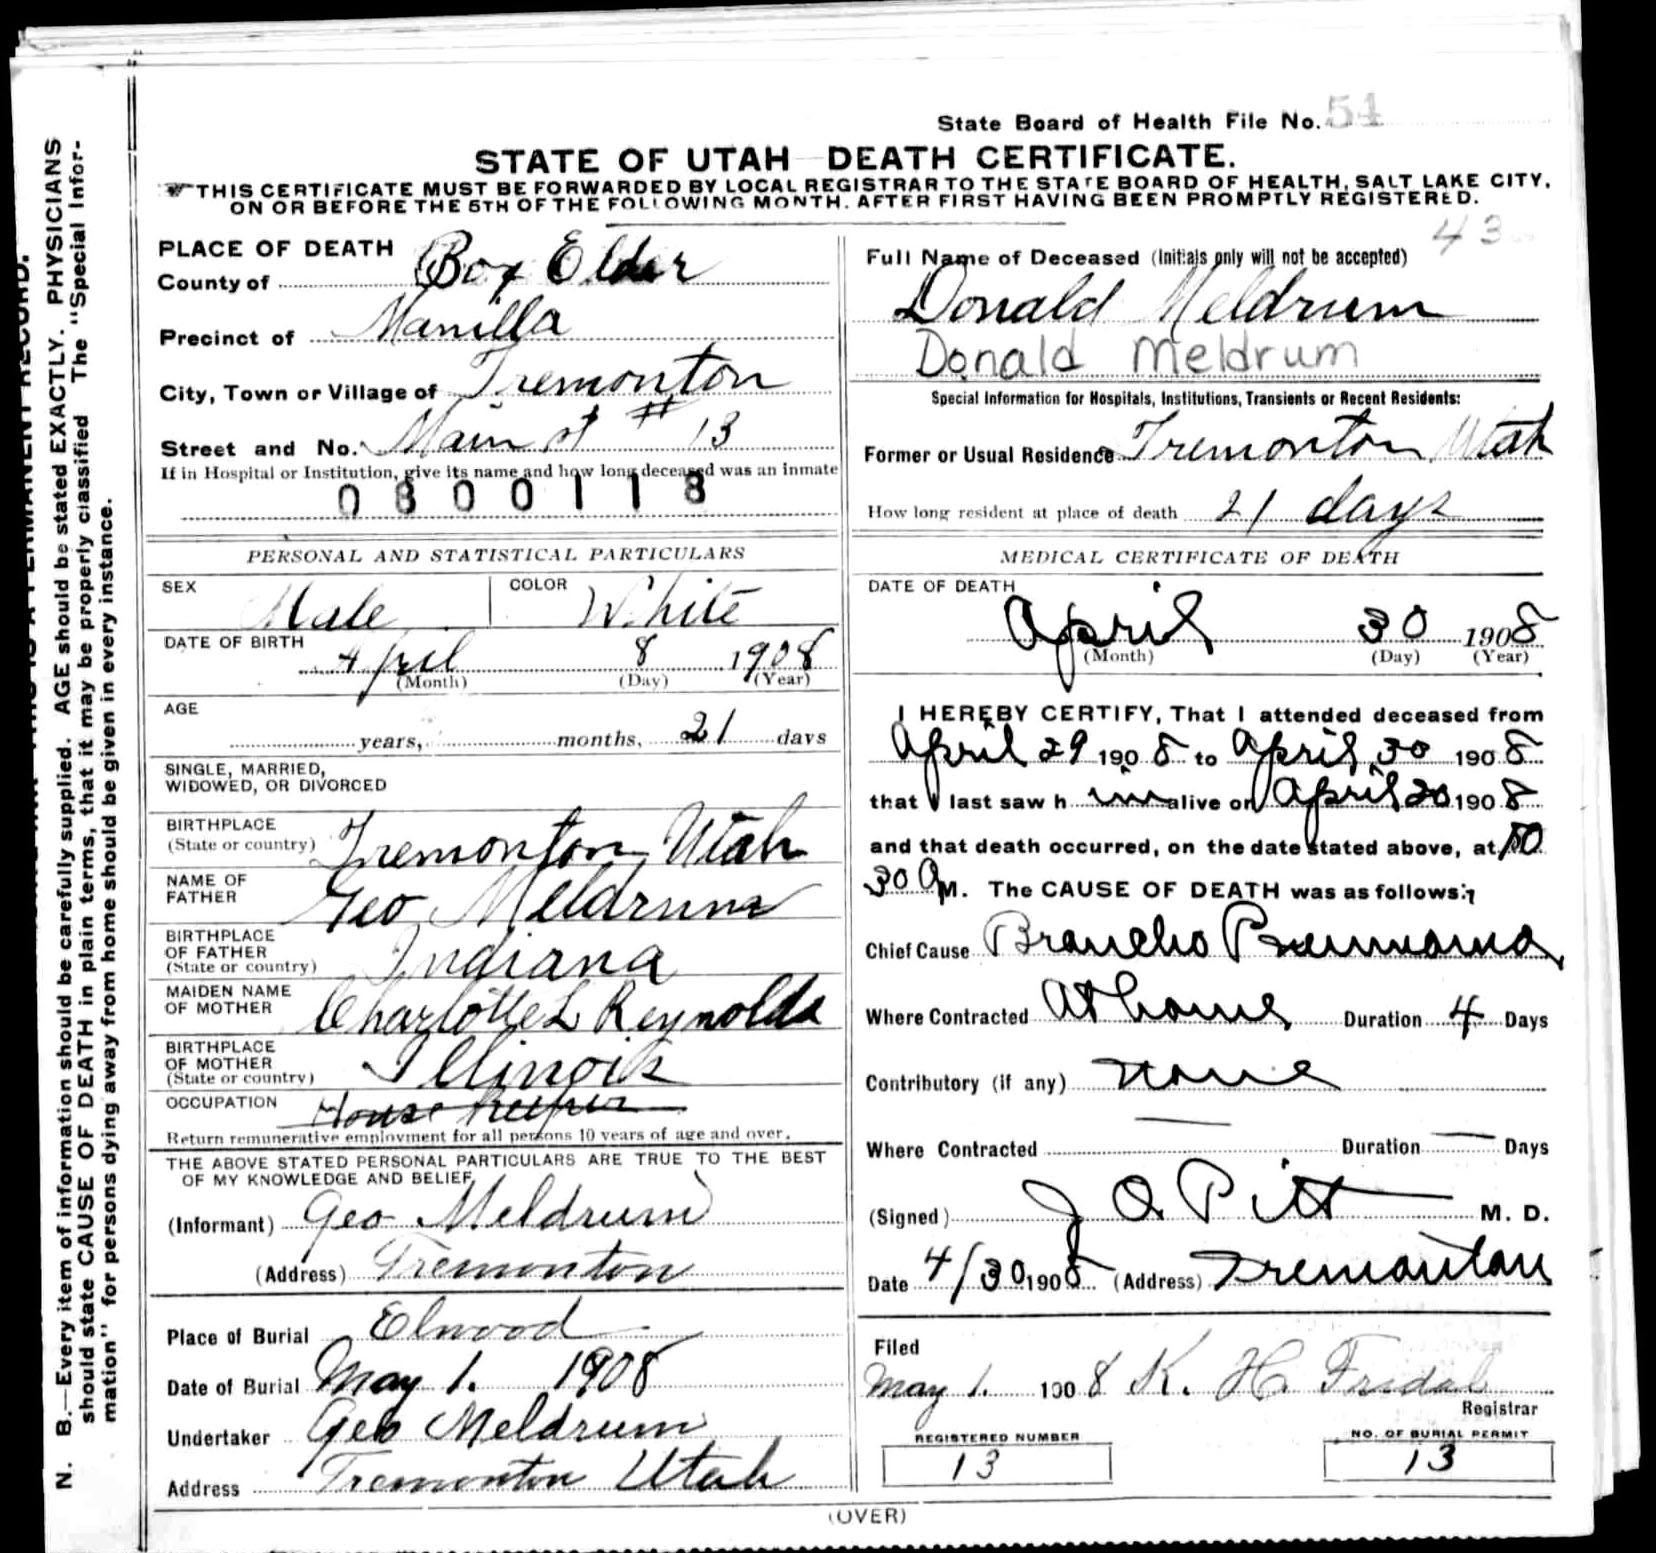 State Board of Health File No. 54
STATE OF UTAH DEATH CERTIFICATE.
THIS CERTIFICATE MUST BE FORWARDED BY LOCAL REGISTRAR TO THE STATE BOARD OF HEALTH, SALT LAKE CITY,
ON OR BEFORE THE 5TH OF THE FOLLOWING MONTH. AFTER FIRST HAVING BEEN PROMPTLY REGISTERED.
43
PLACE OF DEATH
County of Box Elder
Precinct of Manilla
City, Town or Village of Tremonton
Street and No. Main st # 13
If in Hospital or Institution, give its name and how long deceased was an inmate
0800118
PERSONAL AND STATISTICAL PARTICULARS
SEX Male COLOR White
DATE OF BIRTH
April 8 1908
(Month) (Day) (Year)
AGE
years, months, 21 days
SINGLE, MARRIED,
WIDOWED, OR DIVORCED
BIRTHPLACE
(State or country) Tremonton, Utah
NAME OF
FATHER Geo Meldrum
BIRTHPLACE
OF FATHER
(State or country) Indiana
MAIDEN NAME
OF MOTHER Charlotte L Reynolds
BIRTHPLACE
OF MOTHER
(State or country) Illinois
OCCUPATION House Keeper
Return remunerative employment for all persons 10 years of age and over.
THE ABOVE STATED PERSONAL PARTICULARS ARE TRUE TO THE BEST
OF MY KNOWLEDGE AND BELIEF
(Informant) Geo Meldrum
(Address) Tremonton
Place of Burial Elwood
Date of Burial May 1. 1908
Undertaker Geo Meldrum
Address Tremonton Utah
Full Name of Deceased (Initials only will not be accepted)
Donald Meldrum
Donald Meldrum
Special Information for Hospitals, Institutions, Transients or Recent Residents:
Former or Usual Residence Tremonton Utah
How long resident at place of death 21 days
MEDICAL CERTIFICATE OF DEATH
DATE OF DEATH
April 30 1908
(Month) (Day) (Year)
I HEREBY CERTIFY, That I attended deceased from
April 29 1908 to April 30 1908
that I last saw h im alive on April 30 1908
and that death occurred, on the date stated above, at 10
30 A M. The CAUSE OF DEATH was as follows:
Chief Cause Broncho Pneumonia
Where Contracted At home Duration 4 Days
Contributory (if any) None
Where Contracted Duration Days
(Signed) J O Pitt M. D.
Date 4/30 1908 (Address) Tremonton
Filed
May 1. 1908 K. H. Fridal
Registrar
REGISTERED NUMBER
13
NO. OF BURIAL PERMIT
13
(OVER)
N. B.—Every item of information should be carefully supplied. AGE should be stated EXACTLY. PHYSICIANS
should state CAUSE OF DEATH in plain terms, that it may be properly classified The "Special Infor-
mation" for persons dying away from home should be given in every instance.